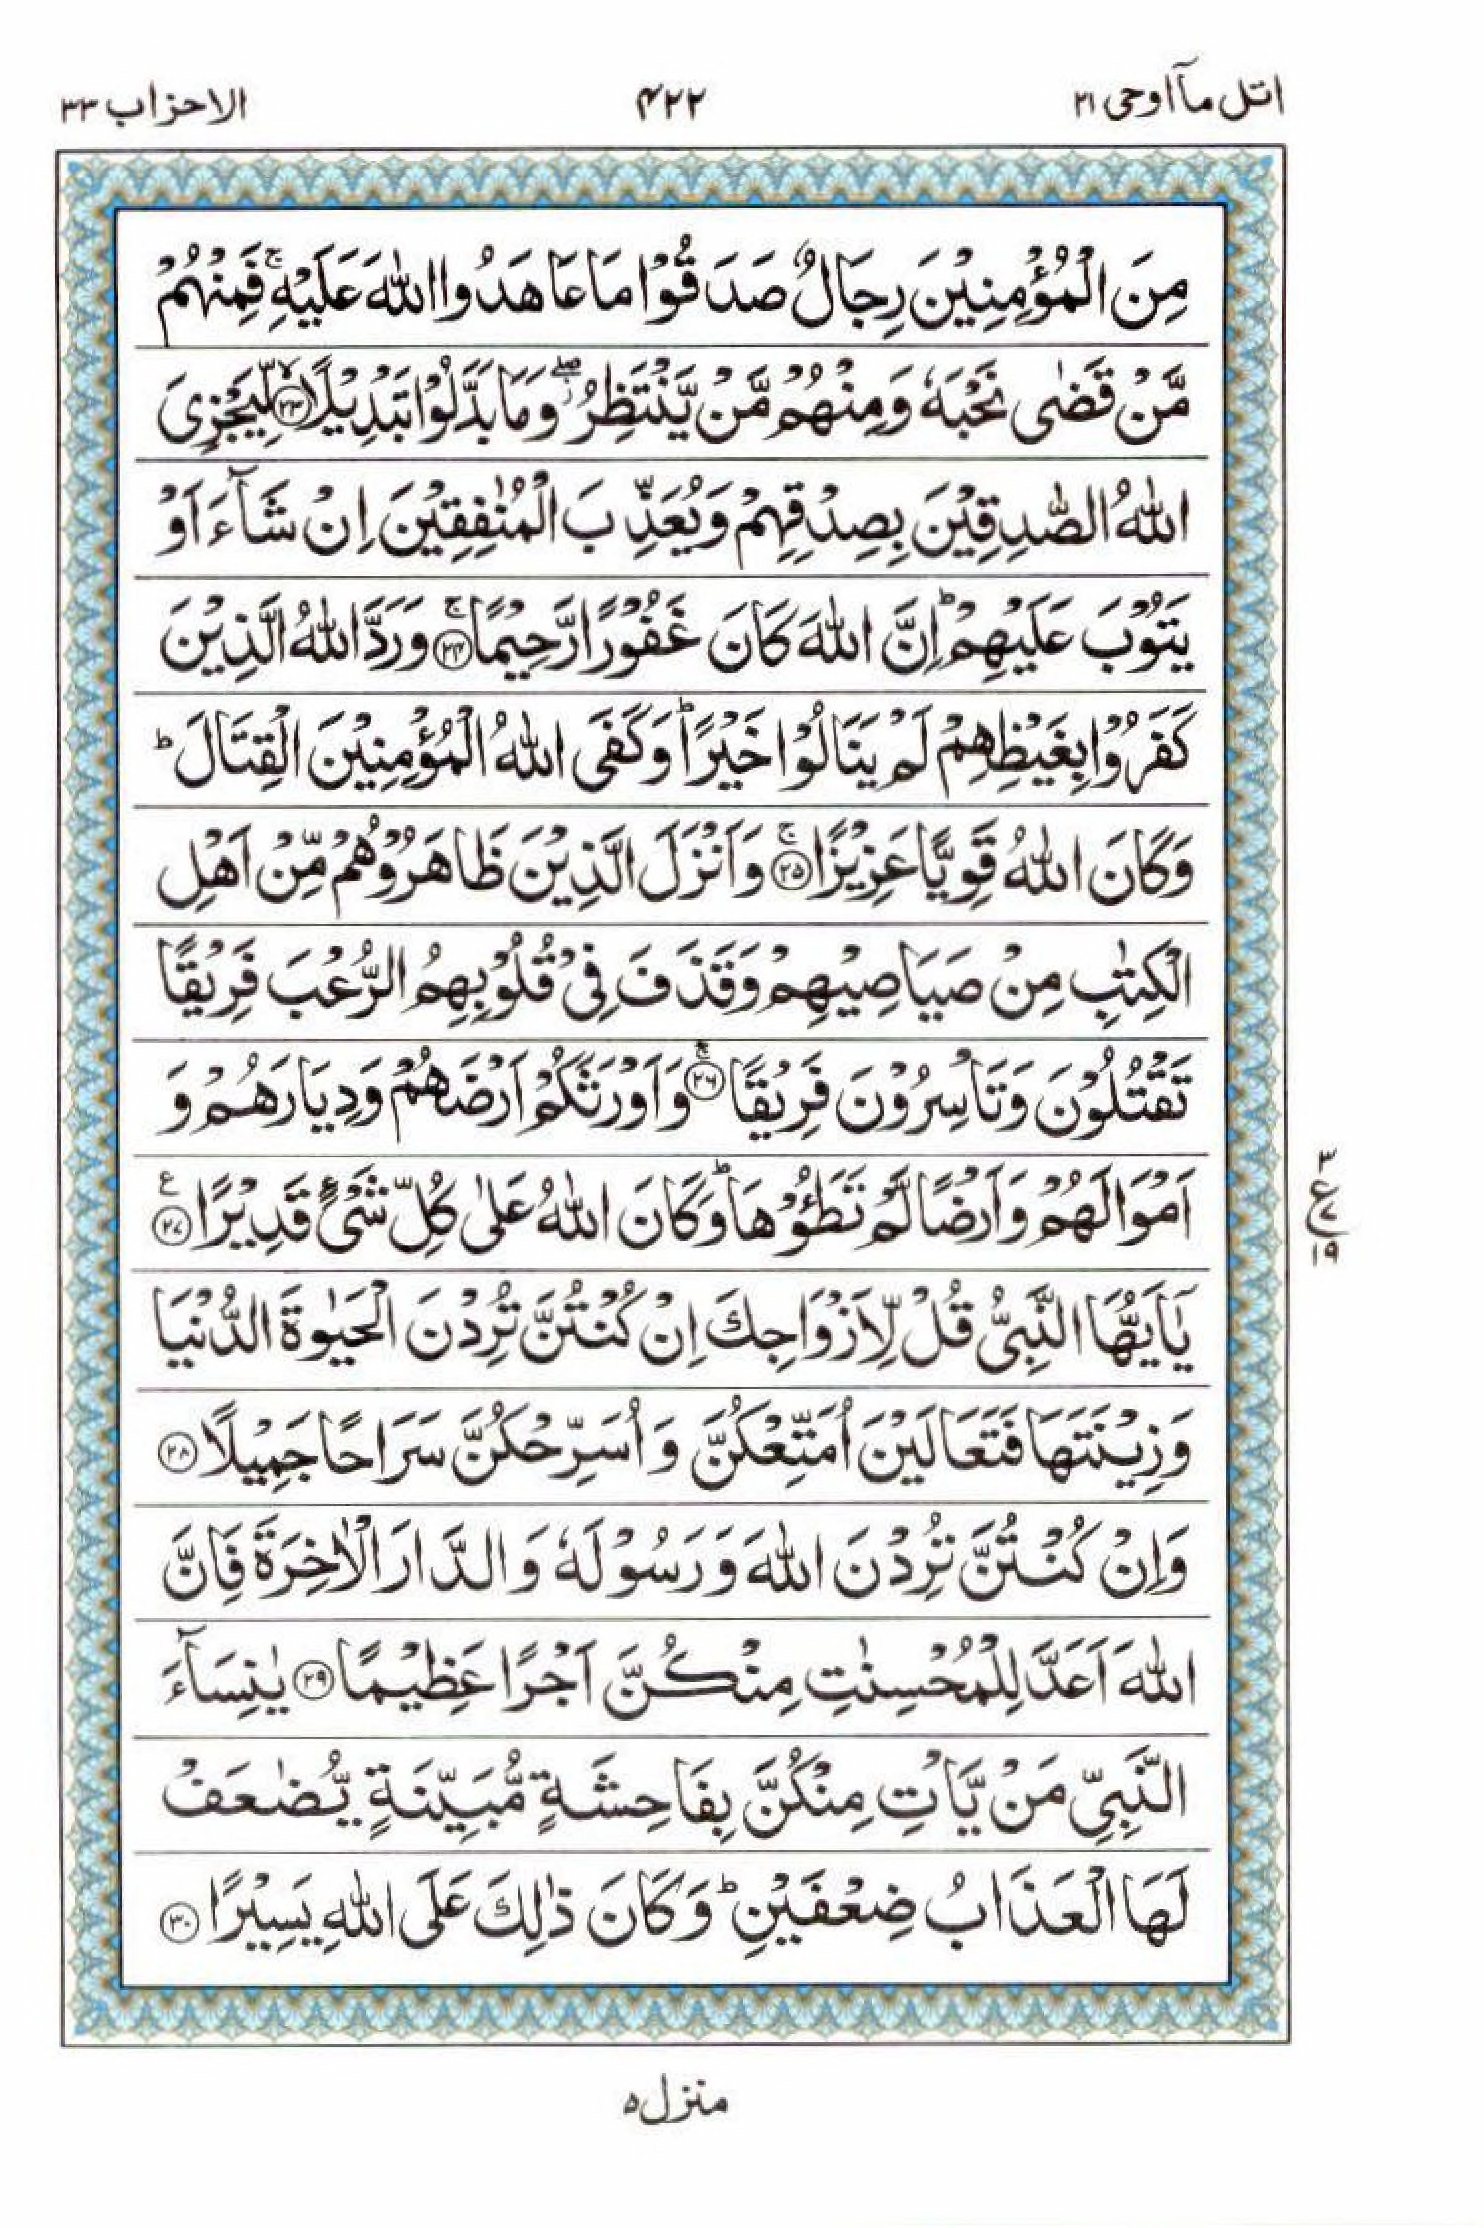 اتل مآاوحی ۲۱ ۴۲۲ الاحزاب ۳۳
مِنَ الْمُؤْمِنِيْنَ رِجَالٌ صَدَقُوْا مَا عَاهَدُوا اللّٰهَ عَلَيْهِ ۚ فَمِنْهُمْ
مَّنْ قَضٰى نَحْبَهٗ وَمِنْهُمْ مَّنْ يَّنْتَظِرُ ۖ وَمَا بَدَّلُوْا تَبْدِيْلًا ۲۳ لِّيَجْزِىَ
اللّٰهُ الصّٰدِقِيْنَ بِصِدْقِهِمْ وَيُعَذِّبَ الْمُنٰفِقِيْنَ اِنْ شَآءَ اَوْ
يَتُوْبَ عَلَيْهِمْ ؕ اِنَّ اللّٰهَ كَانَ غَفُوْرًا رَّحِيْمًا ۚ ۲۴ وَرَدَّ اللّٰهُ الَّذِيْنَ
كَفَرُوْا بِغَيْظِهِمْ لَمْ يَنَالُوْا خَيْرًا ؕ وَكَفَى اللّٰهُ الْمُؤْمِنِيْنَ الْقِتَالَ ؕ
وَكَانَ اللّٰهُ قَوِيًّا عَزِيْزًا ۚ ۲۵ وَاَنْزَلَ الَّذِيْنَ ظَاهَرُوْهُمْ مِّنْ اَهْلِ
الْكِتٰبِ مِنْ صَيَاصِيْهِمْ وَقَذَفَ فِىْ قُلُوْبِهِمُ الرُّعْبَ فَرِيْقًا
تَقْتُلُوْنَ وَتَاْسِرُوْنَ فَرِيْقًا ۚ ۲۶ وَاَوْرَثَكُمْ اَرْضَهُمْ وَدِيَارَهُمْ وَ
اَمْوَالَهُمْ وَاَرْضًا لَّمْ تَطَـُٔوْهَا ؕ وَكَانَ اللّٰهُ عَلٰى كُلِّ شَىْءٍ قَدِيْرًا ۲۷ ع
۳ ع ۷ ۱۹
يٰۤاَيُّهَا النَّبِىُّ قُلْ لِّاَزْوَاجِكَ اِنْ كُنْتُنَّ تُرِدْنَ الْحَيٰوةَ الدُّنْيَا
وَزِيْنَتَهَا فَتَعَالَيْنَ اُمَتِّعْكُنَّ وَاُسَرِّحْكُنَّ سَرَاحًا جَمِيْلًا ۲۸
وَاِنْ كُنْتُنَّ تُرِدْنَ اللّٰهَ وَرَسُوْلَهٗ وَالدَّارَ الْاٰخِرَةَ فَاِنَّ
اللّٰهَ اَعَدَّ لِلْمُحْسِنٰتِ مِنْكُنَّ اَجْرًا عَظِيْمًا ۲۹ يٰنِسَآءَ
النَّبِىِّ مَنْ يَّاْتِ مِنْكُنَّ بِفَاحِشَةٍ مُّبَيِّنَةٍ يُّضٰعَفْ
لَهَا الْعَذَابُ ضِعْفَيْنِ ؕ وَكَانَ ذٰلِكَ عَلَى اللّٰهِ يَسِيْرًا ۳۰
منزل ۵